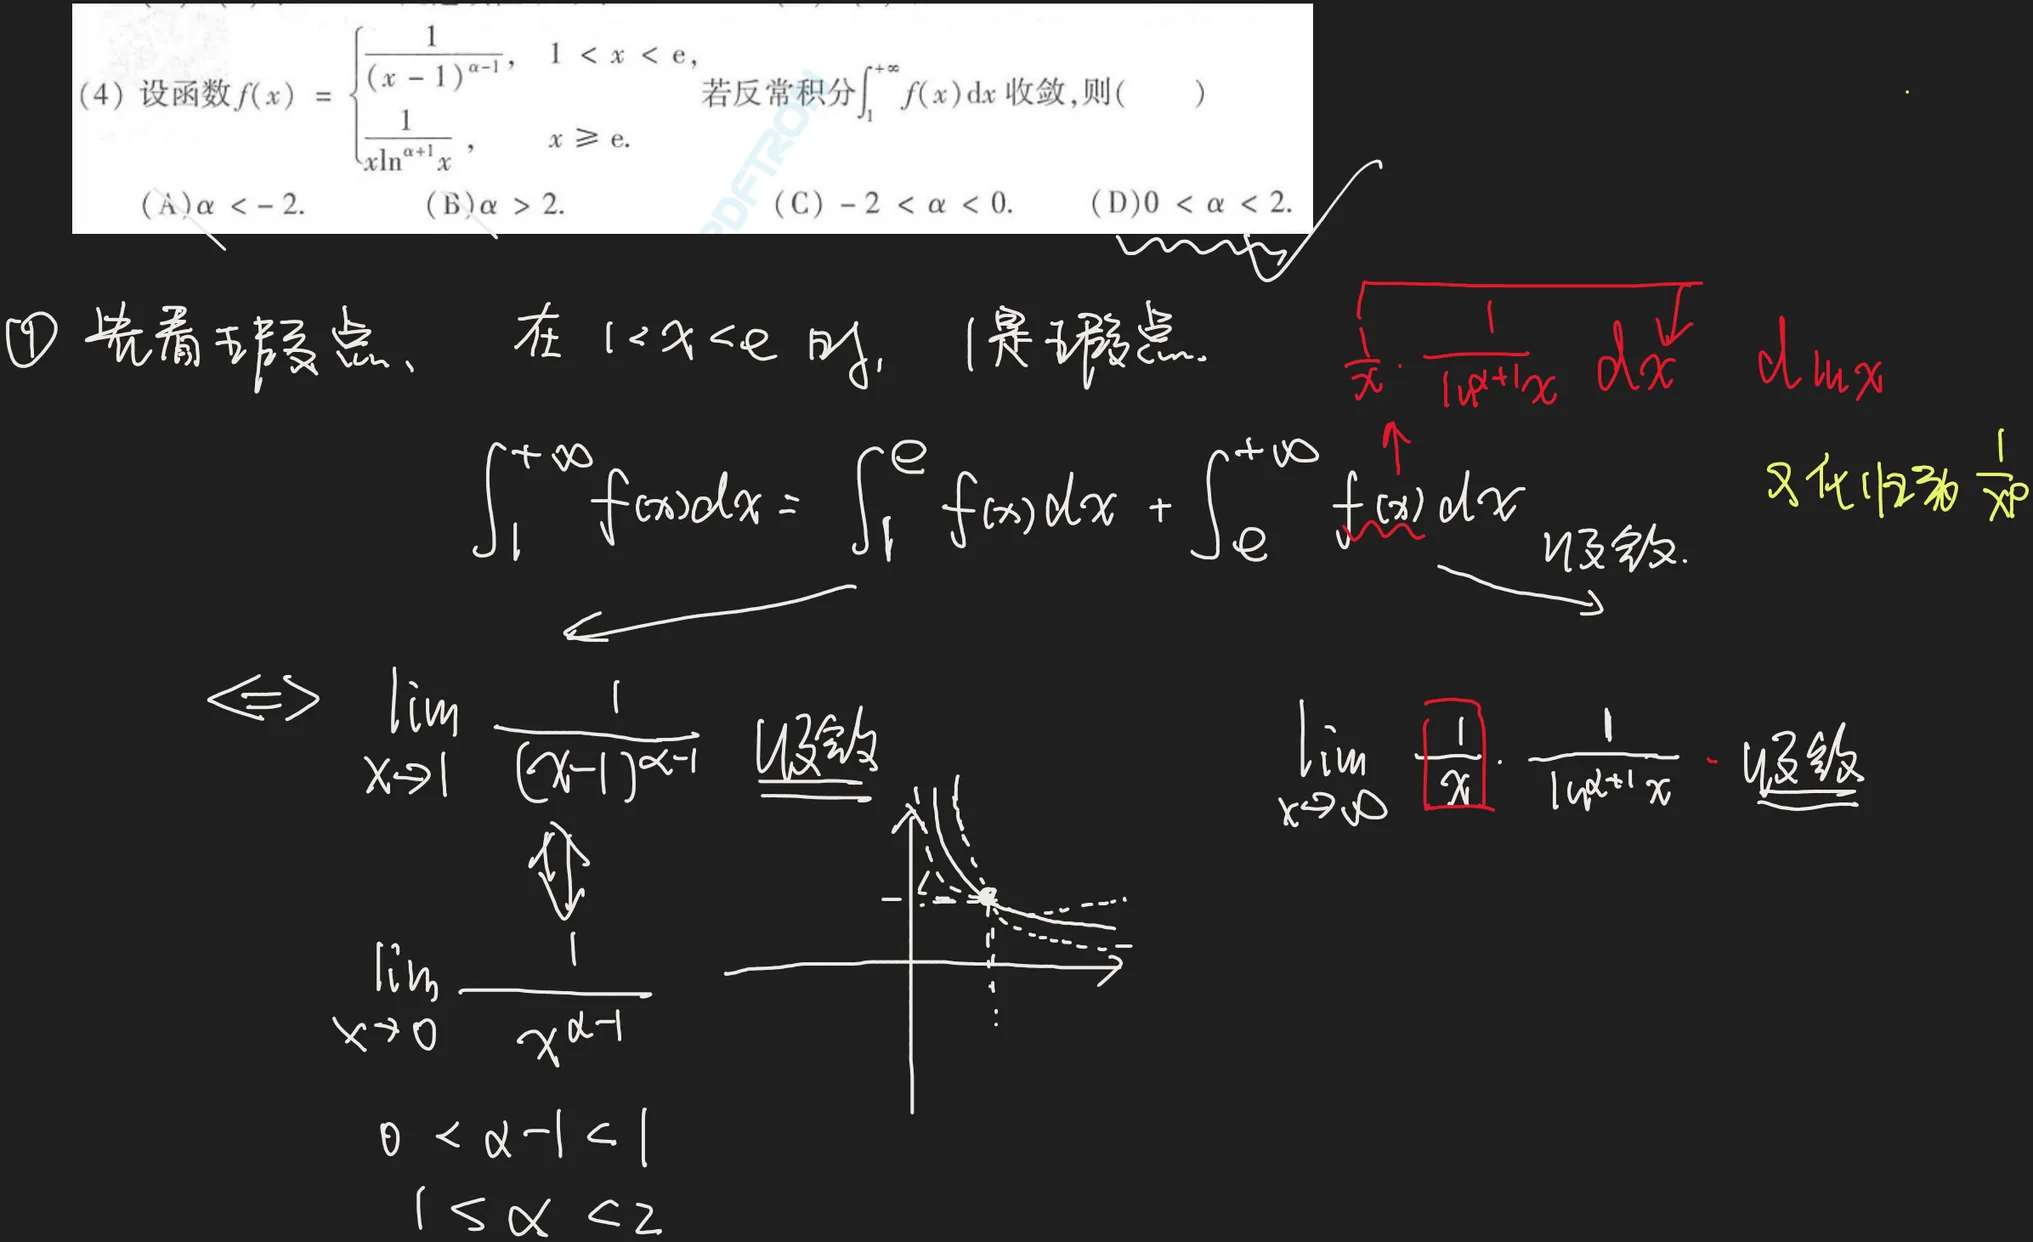 (4) 设函数 f(x) = { 1/(x − 1)^(α−1), 1 < x < e, 1/(x ln^(α+1) x), x ≥ e. 若反常积分∫_1^(+∞) f(x)dx 收敛,则( )
(A)α < − 2. (B)α > 2. (C) − 2 < α < 0. (D)0 < α < 2.
PDFTRON
① 先看瑕点、 在 1 < x < e 时, 1是瑕点.
1/x · 1/(ln^(α+1) x) dx d ln x
∫_1^(+∞) f(x)dx = ∫_1^e f(x)dx + ∫_e^(+∞) f(x)dx 收敛.
1/x^p
<=> lim x→1 1/(x−1)^(α−1) 收敛
lim x→∞ 1/x · 1/(ln^(α+1) x) · 收敛
lim x→0 1/x^(α−1)
0 < α−1 < 1
1 ≤ α < 2